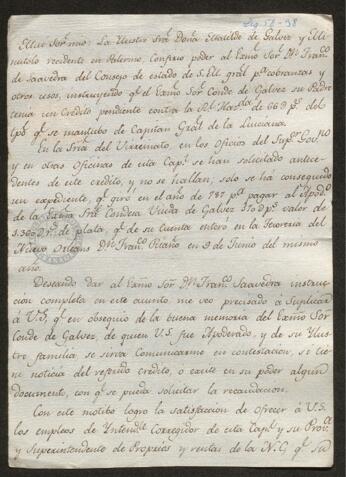 Leg. 56-98
Illmo Sor. mio: La Ilustre Sra. Doña Matilde de Galvez y Mi
nutolo recidente en Palermo, confirio poder al Exmo Sor. Dn. Franco.
de Saavedra del Consejo de estado de S.M. gral pa. cobranzas y
otros usos, instruyendo qe. el Exmo Sor. Conde de Galvez su Padre
tenia un Credito pendiente contra la Rl. Hazda. de 66 ps. del
tpo. qe. se mantubo de Capitan Gral de la Luiciana.
En la Sria del Virreinato, en los Oficios del Supr. Govno.
y en otras Oficinas de esta Capl. se han solicitado antece
dentes de este credito, y no se hallan, solo se há conseguido
un expediente qe. giró en el año de 787 pa. pagar al Apodo.
de la Exma Sra. Condesa Viuda de Galvez ps. valor de
de plata, qe. de su cuenta entero en la Tesoreria del
Nuevo Orleans Dn. Franco. Riaño en 9 de Junio del mismo
año.
Deseando dar al Exmo Sor. Dn. Franco. Saavedra instruc
cion completa en este asunto, me veo precisado á Suplicar
á V.S. qe. en obsequio de la buena memoria del Exmo Sor.
Conde de Galvez, de quien V.S. fue Apoderado, y de su Ilus
tre familia se sirva Comunicarme en contestacion, se tie
ne noticia del referido Crédito, ó exite en su poder algun
documento, con qe. se pueda solicitar la recaudacion.
Con este motibo logro la satisfaccion de ofrecer á V.S.
los empleos de Intendte. Corregidor de esta Capl. y su Prova.
y Superintendente de Proprios y rentas de la N.C. qe. Su